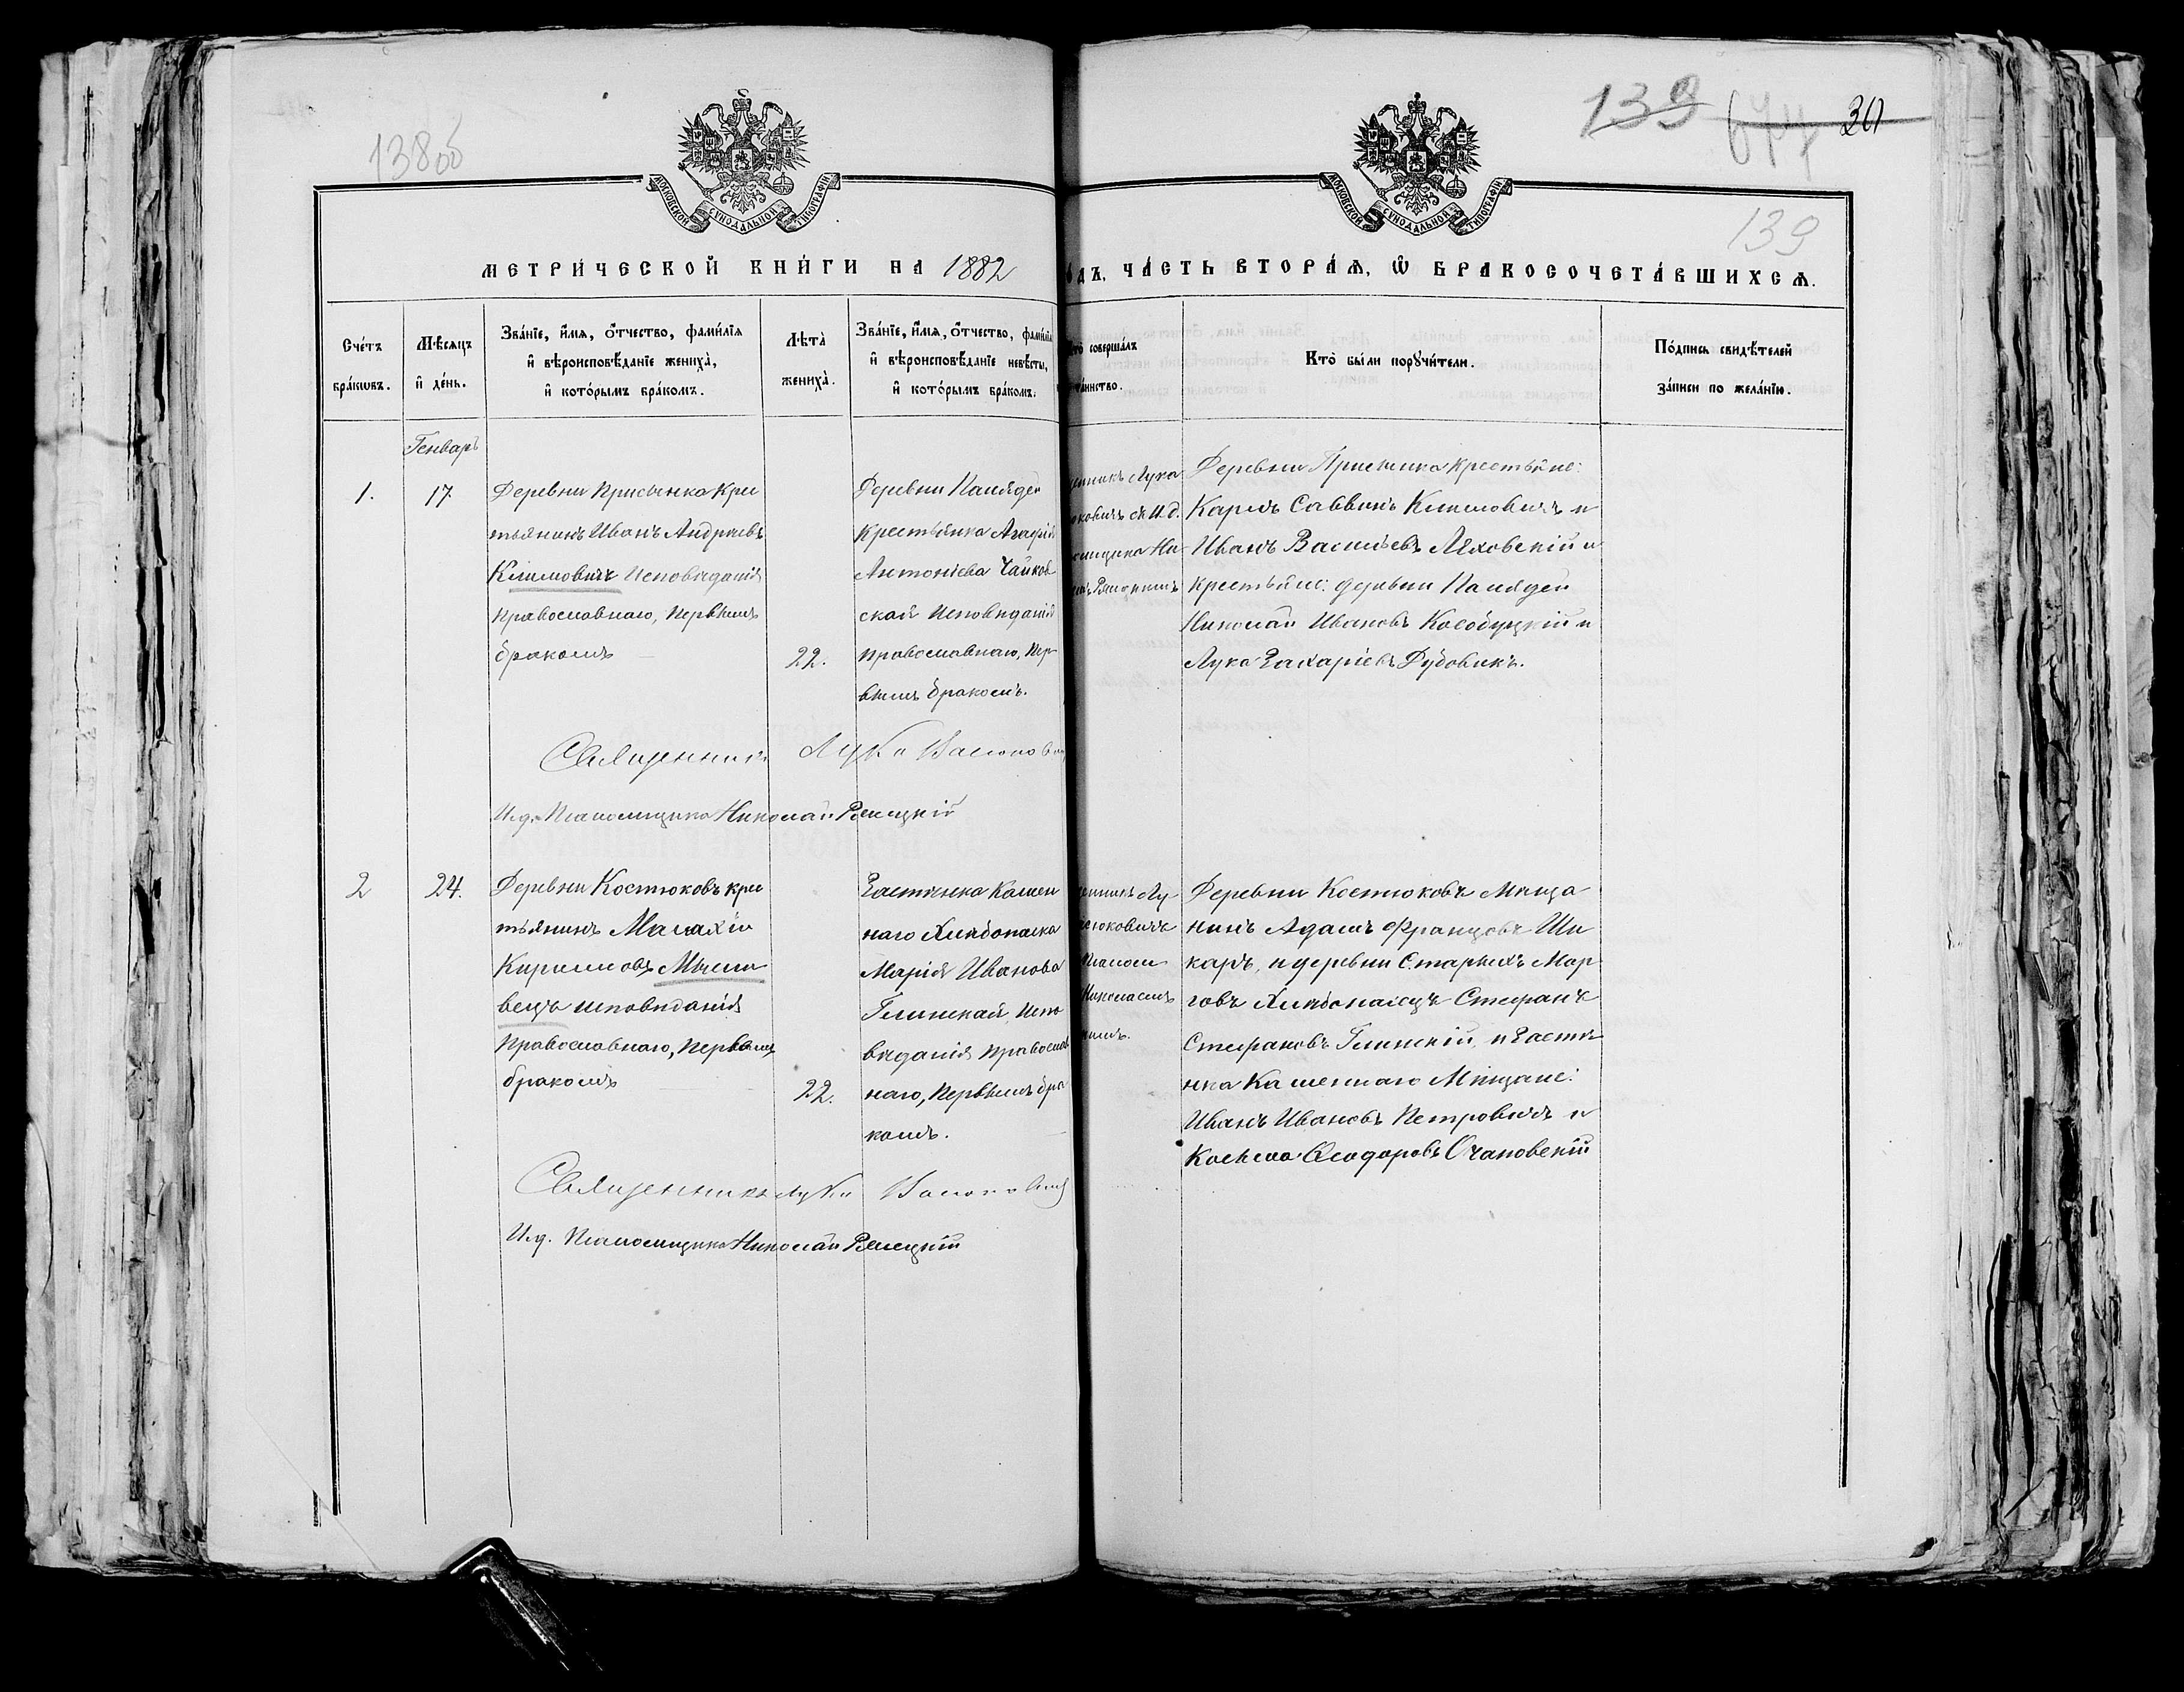 138об
139
644
30
139
МОСКОВСКОЙ СѴНОДАЛЬНОЙ ТИПОГРАФІИ
МОСКОВСКОЙ СѴНОДАЛЬНОЙ ТИПОГРАФІИ
МЕТРИ́ЧЕСКОЙ КНИ́ГИ НА 1882
ГОДЪ, ЧА́СТЬ ВТОРА́Ѧ, Ѿ БРАКОСОЧЕТА́ВШИХСѦ.
Сче́тъ бра́кѡвъ.
Мѣ́сѧцъ и҆ де́нь.
Зва́нїе, и҆́мѧ, ѻ҆́тчество, фами́лїѧ
и҆ вѣроисповѣ́данїе жениха̀,
и҆ кото́рымъ бра́комъ.
Лѣ́та̀ жениха̀.
Зва́нїе, и҆́мѧ, ѻ҆́тчество, фами́лїѧ
и҆ вѣроисповѣ́данїе невѣ́сты,
и҆ кото́рымъ бра́комъ.
Кто̀ соверша́лъ
та́инство.
Кто̀ бы́ли порꙋчи́тели.
По́дпись свидѣ́телей
за́писи по жела́нїю.
Генварь
1.
17
Деревни Присынка Крес
тьянинъ Иванъ Андреевъ
Климовичъ исповѣданія
православнаго, первымъ
бракомъ
22.
Деревни Наквдей
крестьянка Агафія
Антоніева Чайков
ская исповѣданія
православнаго, пер
вымъ бракомъ.
щенникъ Лука
юковичъ съ И.д.
омщика Ни
Деревни Присынка крестьяне:
Карпъ Саввинъ Климовичъ и
Иванъ Васильевъ Ляховскій и
крестьяне: деревни
Николай Ивановъ Кособуцкій и
Лука Захаріевъ Дубовикъ.
Священникъ Лука Васюкович
И.д. Псаломщика Николай Рѣпцкій
2
24.
Деревни Костюковъ крес
тьянинъ Малахій
Кирилловъ Мысли
вецъ исповѣданія
православнаго, первымъ
бракомъ
22.
Застѣнка Камен
наго Хлѣбопашка
Марія Иванова
Глинская, испо
вѣданія православ
наго, первымъ бра
комъ.
щенникъ Лу
сюковичъ
Псалом
Николаемъ
Деревни Костюковъ Мѣща
нинъ Адамъ Францовъ Ши
каръ, и деревни Старыхъ Мор
говъ Хлѣбопашецъ Стефанъ
Стефановъ Глинскій, и Застѣ
нка Каменнаго Мѣщане:
Иванъ Ивановъ Петровичъ и
Косьма Ѳеодоровъ Очаповскій
Священникъ Лука Васюкович
И.д. Псаломщика Николай Рѣпцкій